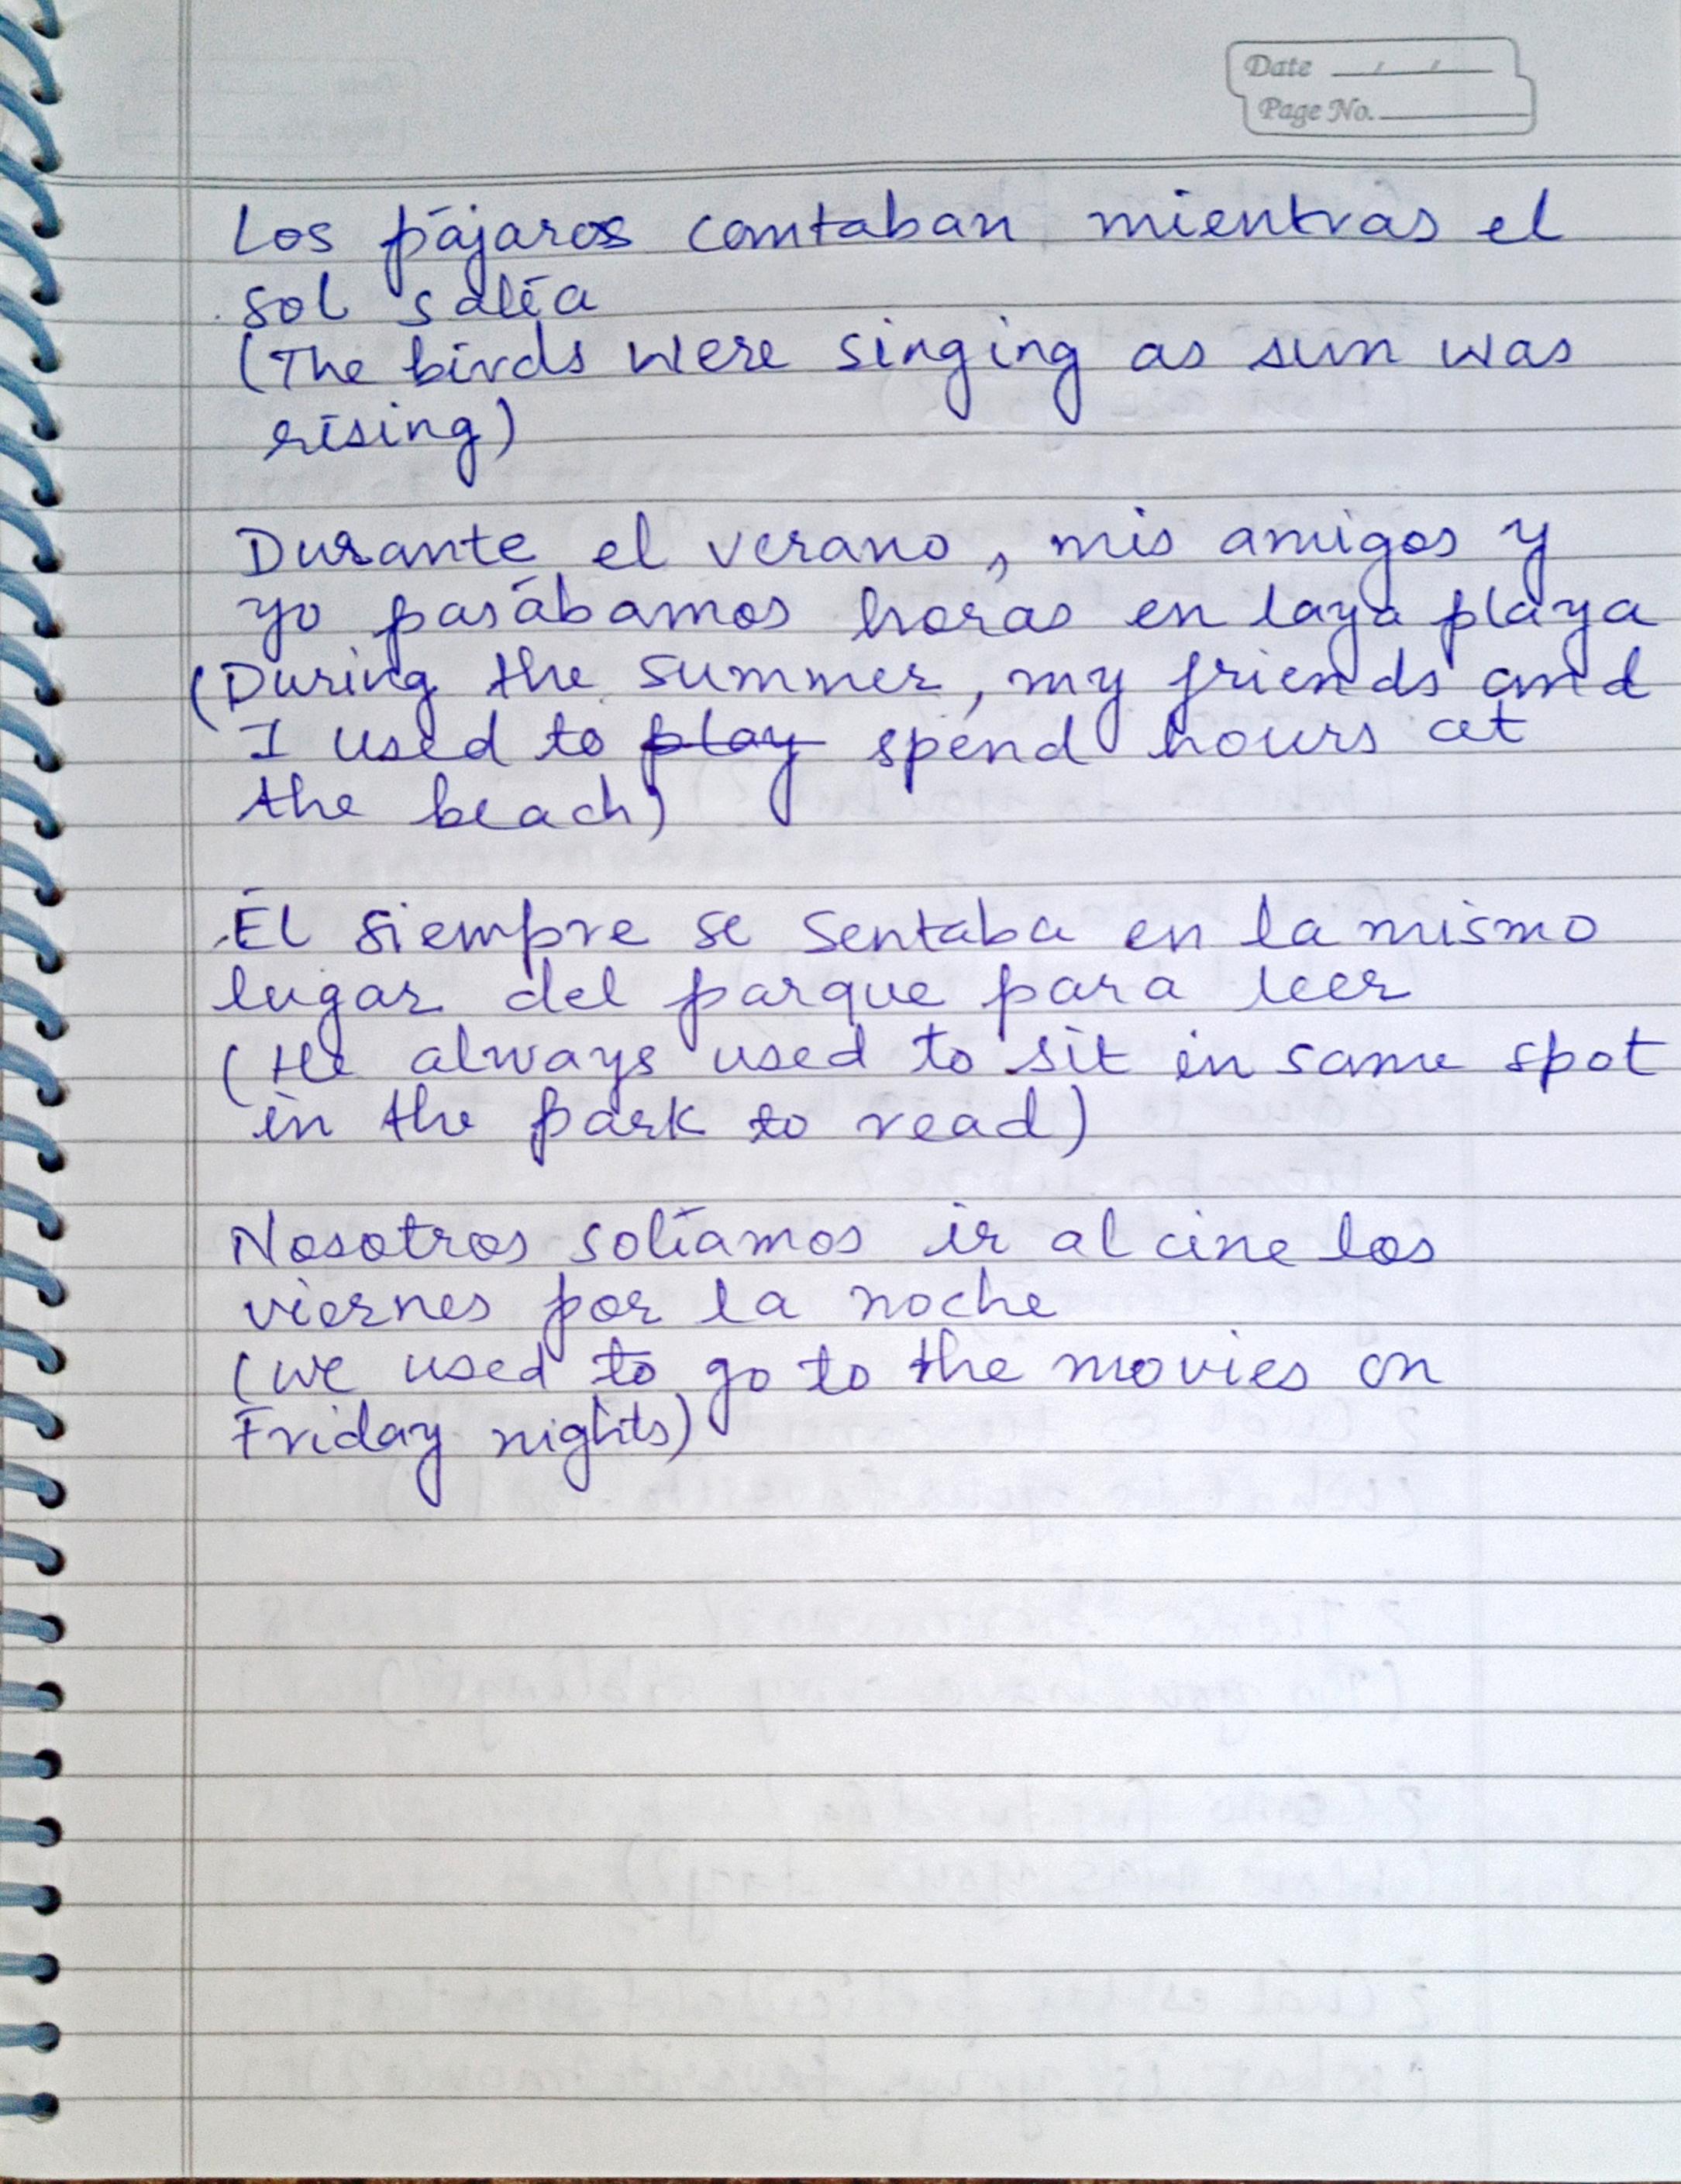 Date
Page No.
Los pájaros comtaban mientras el
sol salía
(The birds were singing as sun was
rising)
Durante el verano, mis amigos y
yo pasábamos horas en laya playa
(During the summer, my friends and
I used to play spend hours at
the beach)
Él siempre se sentaba en la mismo
lugar del parque para leer
(He always used to sit in same spot
in the park to read)
Nosotros solíamos ir al cine los
viernes por la noche
(we used to go to the movies on
Friday nights)